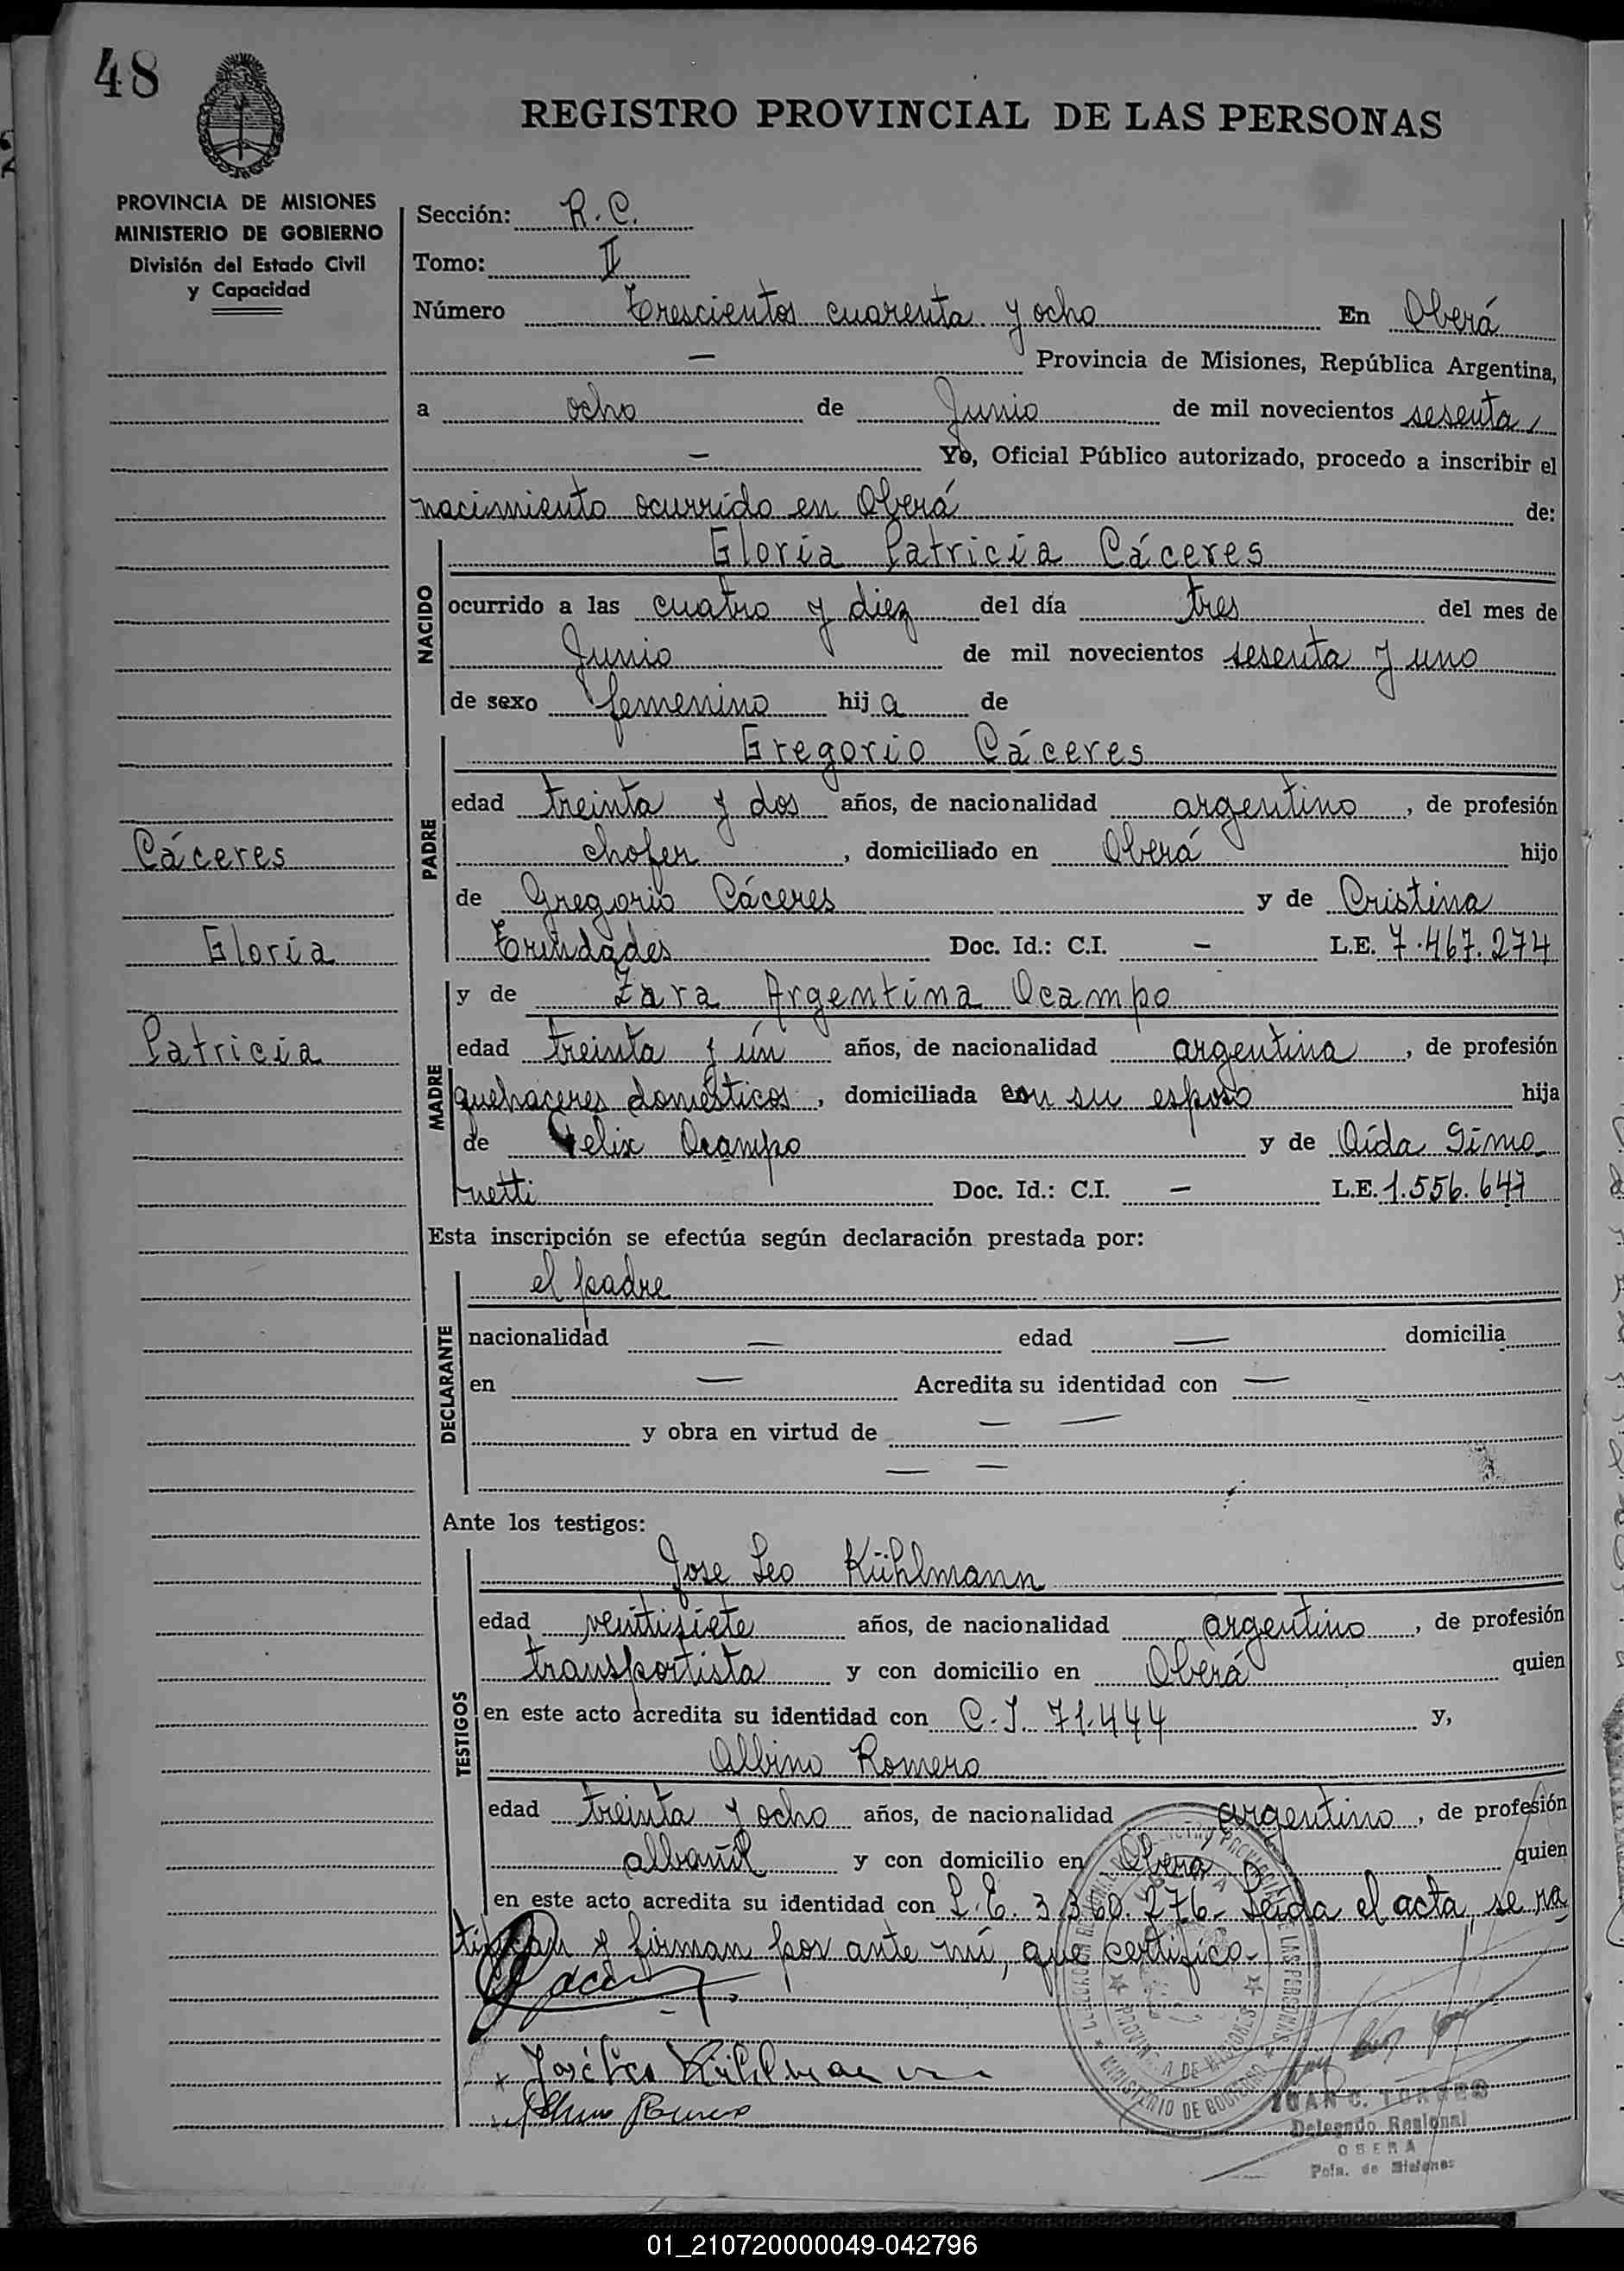 48
REGISTRO PROVINCIAL DE LAS PERSONAS
PROVINCIA DE MISIONES
MINISTERIO DE GOBIERNO
División del Estado Civil
y Capacidad
Sección: R. C.
Tomo: II
Número Trescientos cuarenta y ocho En Oberá
— Provincia de Misiones, República Argentina,
a ocho de Junio de mil novecientos sesenta
— Yo, Oficial Público autorizado, procedo a inscribir el
nacimiento ocurrido en Oberá de:
NACIDO
Gloria Patricia Cáceres
ocurrido a las cuatro y diez del día tres del mes de
Junio de mil novecientos sesenta y uno
de sexo femenino hij a de
PADRE
Gregorio Cáceres
edad treinta y dos años, de nacionalidad argentino, de profesión
chofer, domiciliado en Oberá hijo
de Gregorio Cáceres y de Cristina
Trindades Doc. Id.: C.I. — L.E. 7.467.274
Cáceres
Gloria
Patricia
MADRE
y de Zara Argentina Ocampo
edad treinta y ún años, de nacionalidad argentina, de profesión
quehaceres domésticos, domiciliada con su esposo hija
de Felix Ocampo y de Aída Simo
netti Doc. Id.: C.I. — L.E. 1.556.647
Esta inscripción se efectúa según declaración prestada por:
DECLARANTE
el padre
nacionalidad — edad — domicilia
en — Acredita su identidad con —
y obra en virtud de — —
— —
Ante los testigos:
TESTIGOS
Jose Leo Kühlmann
edad veintisiete años, de nacionalidad argentino, de profesión
transportista y con domicilio en Oberá quien
en este acto acredita su identidad con C.I. 71.444 y,
Albino Romero
edad treinta y ocho años, de nacionalidad argentino, de profesión
albañil y con domicilio en Oberá quien
en este acto acredita su identidad con L.E. 3.360.276.- Leida el acta, se ra
tifican y firman por ante mí, que certifico.-
José Leo Kühlmann
Albino Romero
MINISTERIO DE GOBIERNO
PROVINCIA DE MISIONES
JUAN C. TORRES
Delegado Regional
OBERA
Pcia. de Misiones
01_210720000049-042796